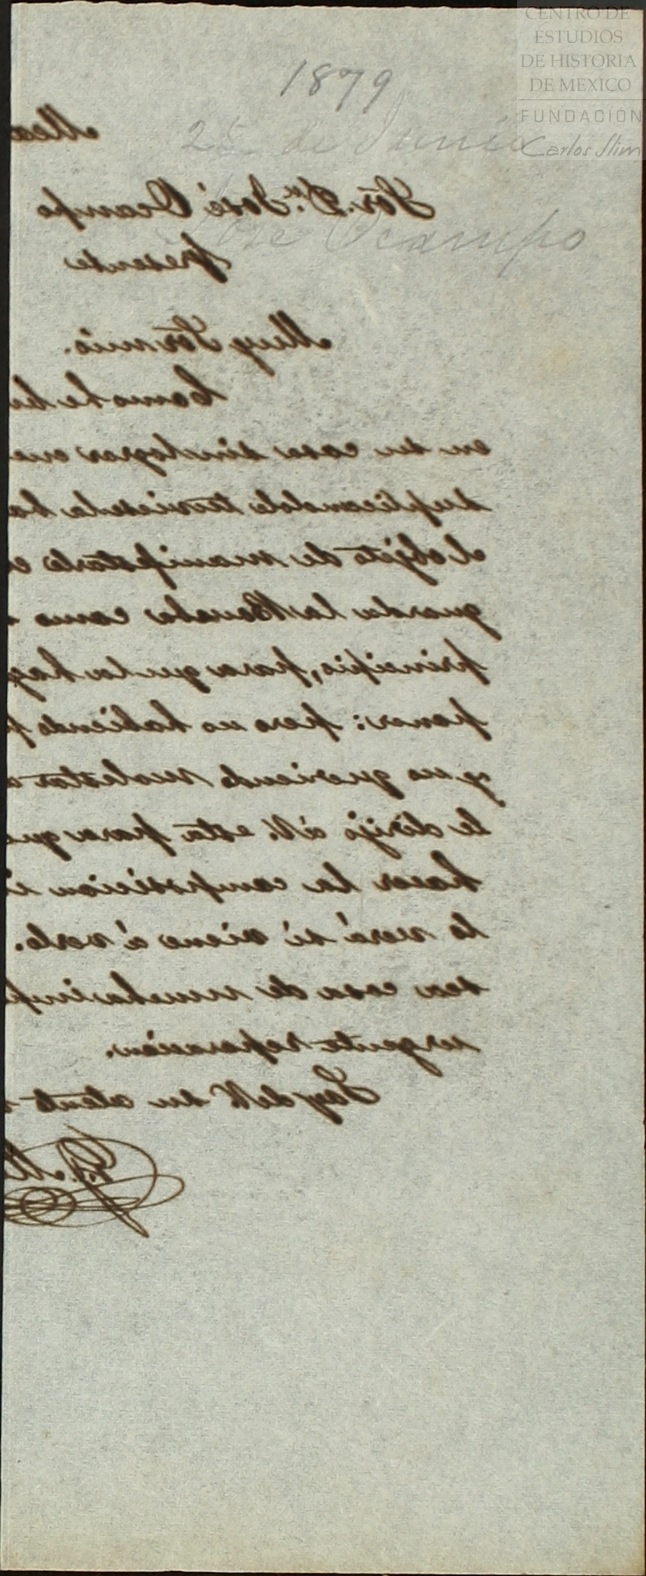 CENTRO DE
ESTUDIOS
DE HISTORIA
DE MEXICO
FUNDACIÓN
Carlos Slim
1879
25 de Junio
José Ocampo
Mex
Sor. Dn. José Ocampo
Presente
Muy Sor mio.
Como he
en su casa sin lograr
suplicandole tuviese la
el objeto de manifestarle
guarda la Bomba como
principio, para que la
poner: pero no habiendo
y no queriendo molestar
le dirijo á V. esta para que
hacer la composicion
lo verá si viene á verlo.
sea cosa de mucha
urgente reparacion.
Soy de V. su atento